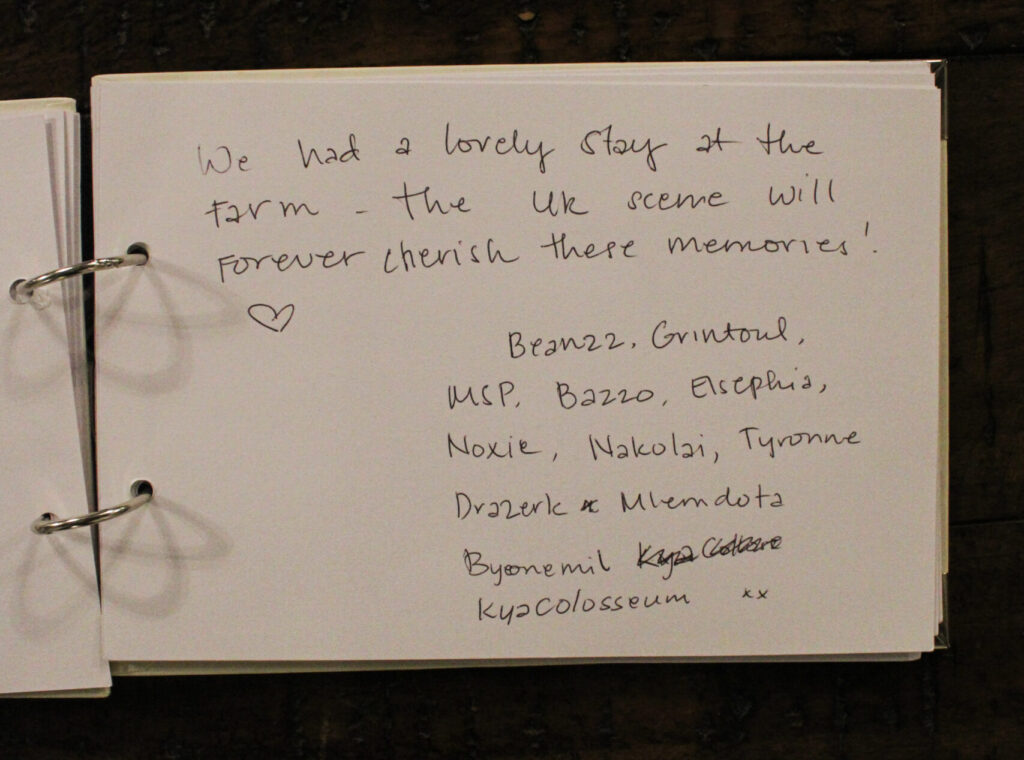 We had a lovely stay at the
Farm - the UK scene will
Forever cherish these memories!
Beanzz, Grintoul,
MSP, Bazzo, Elsephia,
Noxie, Nakolai, Tyronne
Drazerk x Mlemdota
Byeonemil
KyaColosseum xx